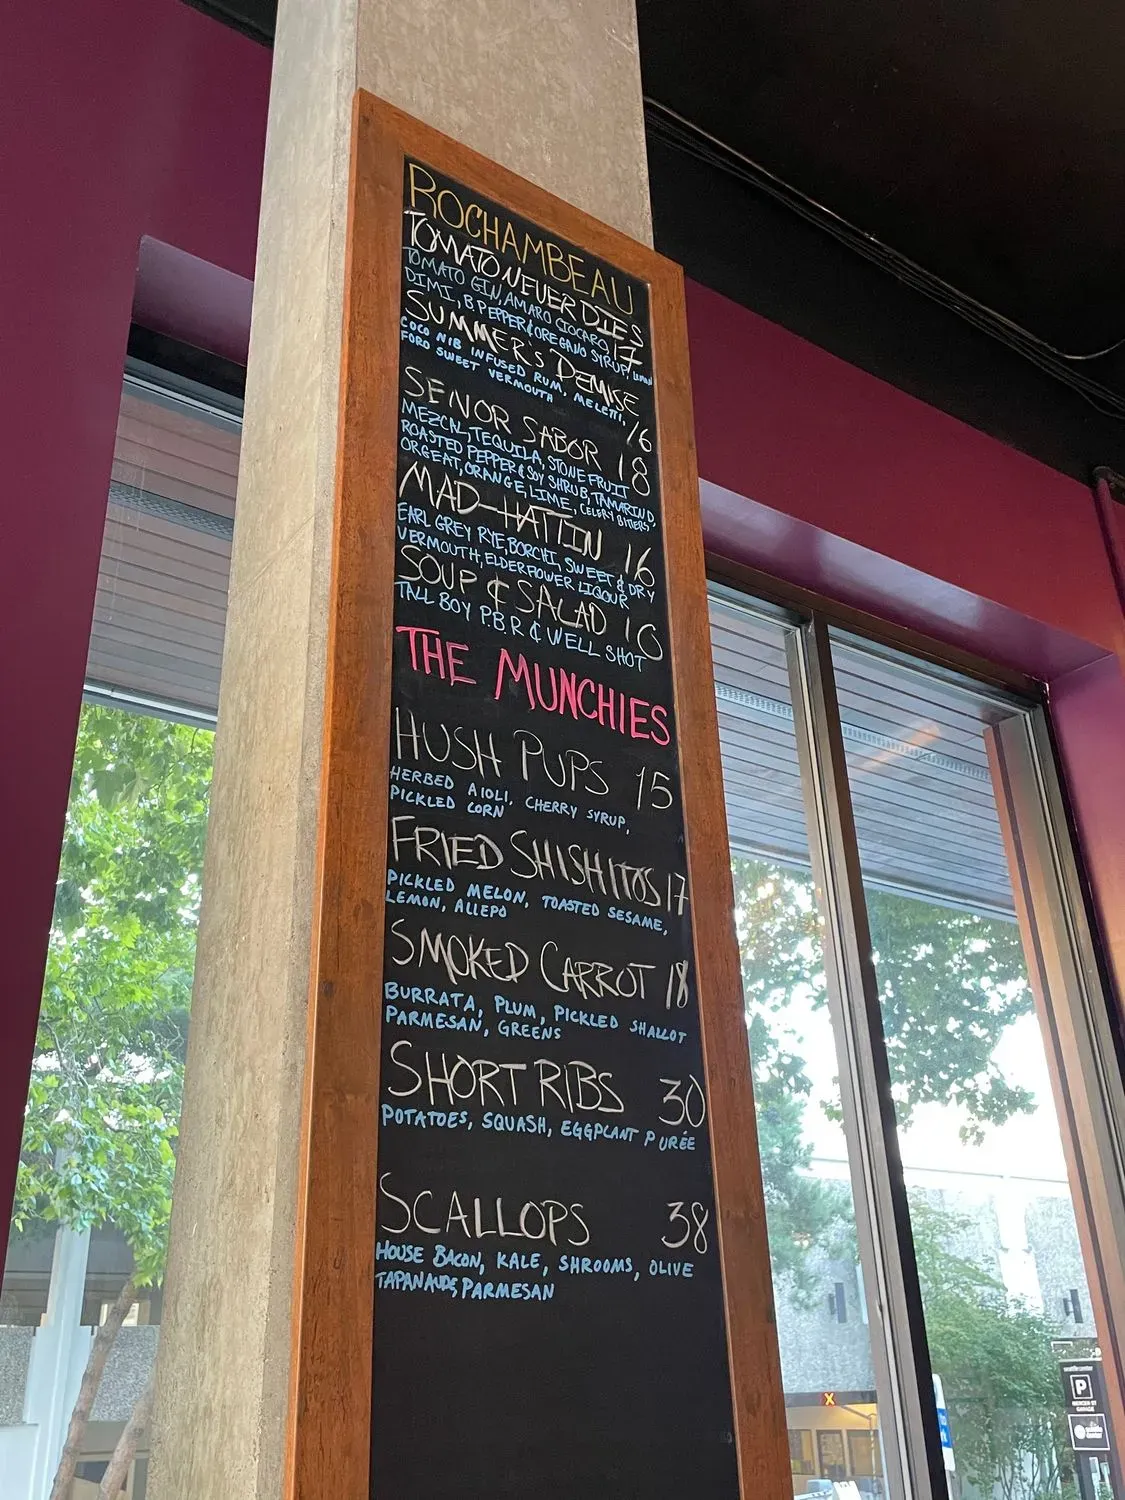 ROCHAMBEAU
TOMATO NEVER DIES
TOMATO GIN, AMARO CIOCARO 17
DIMI, B PEPPER & OREGANO SYRUP, LEMON
SUMMER'S DEMISE
COCO NIB INFUSED RUM, MELETTI,
FORO SWEET VERMOUTH 16
SENOR SABOR 18
MEZCAL, TEQUILA, STONE FRUIT
ROASTED PEPPER & SOY SHRUB, TAMARIND,
ORGEAT, ORANGE, LIME, CELERY BITTERS
MAD-HATTIN 16
EARL GREY RYE, BORCHI, SWEET & DRY
VERMOUTH, ELDERFLOWER LIQOUR
SOUP & SALAD 10
TALL BOY P.B.R & WELL SHOT
THE MUNCHIES
HUSH PUPS 15
HERBED AIOLI, CHERRY SYRUP,
PICKLED CORN
FRIED SHISHITOS 17
PICKLED MELON, TOASTED SESAME,
LEMON, ALLEPO
SMOKED CARROT 18
BURRATA, PLUM, PICKLED SHALLOT
PARMESAN, GREENS
SHORT RIBS 30
POTATOES, SQUASH, EGGPLANT PURÉE
SCALLOPS 38
HOUSE BACON, KALE, SHROOMS, OLIVE
PARMESAN
X
P
MERCER ST
GARAGE